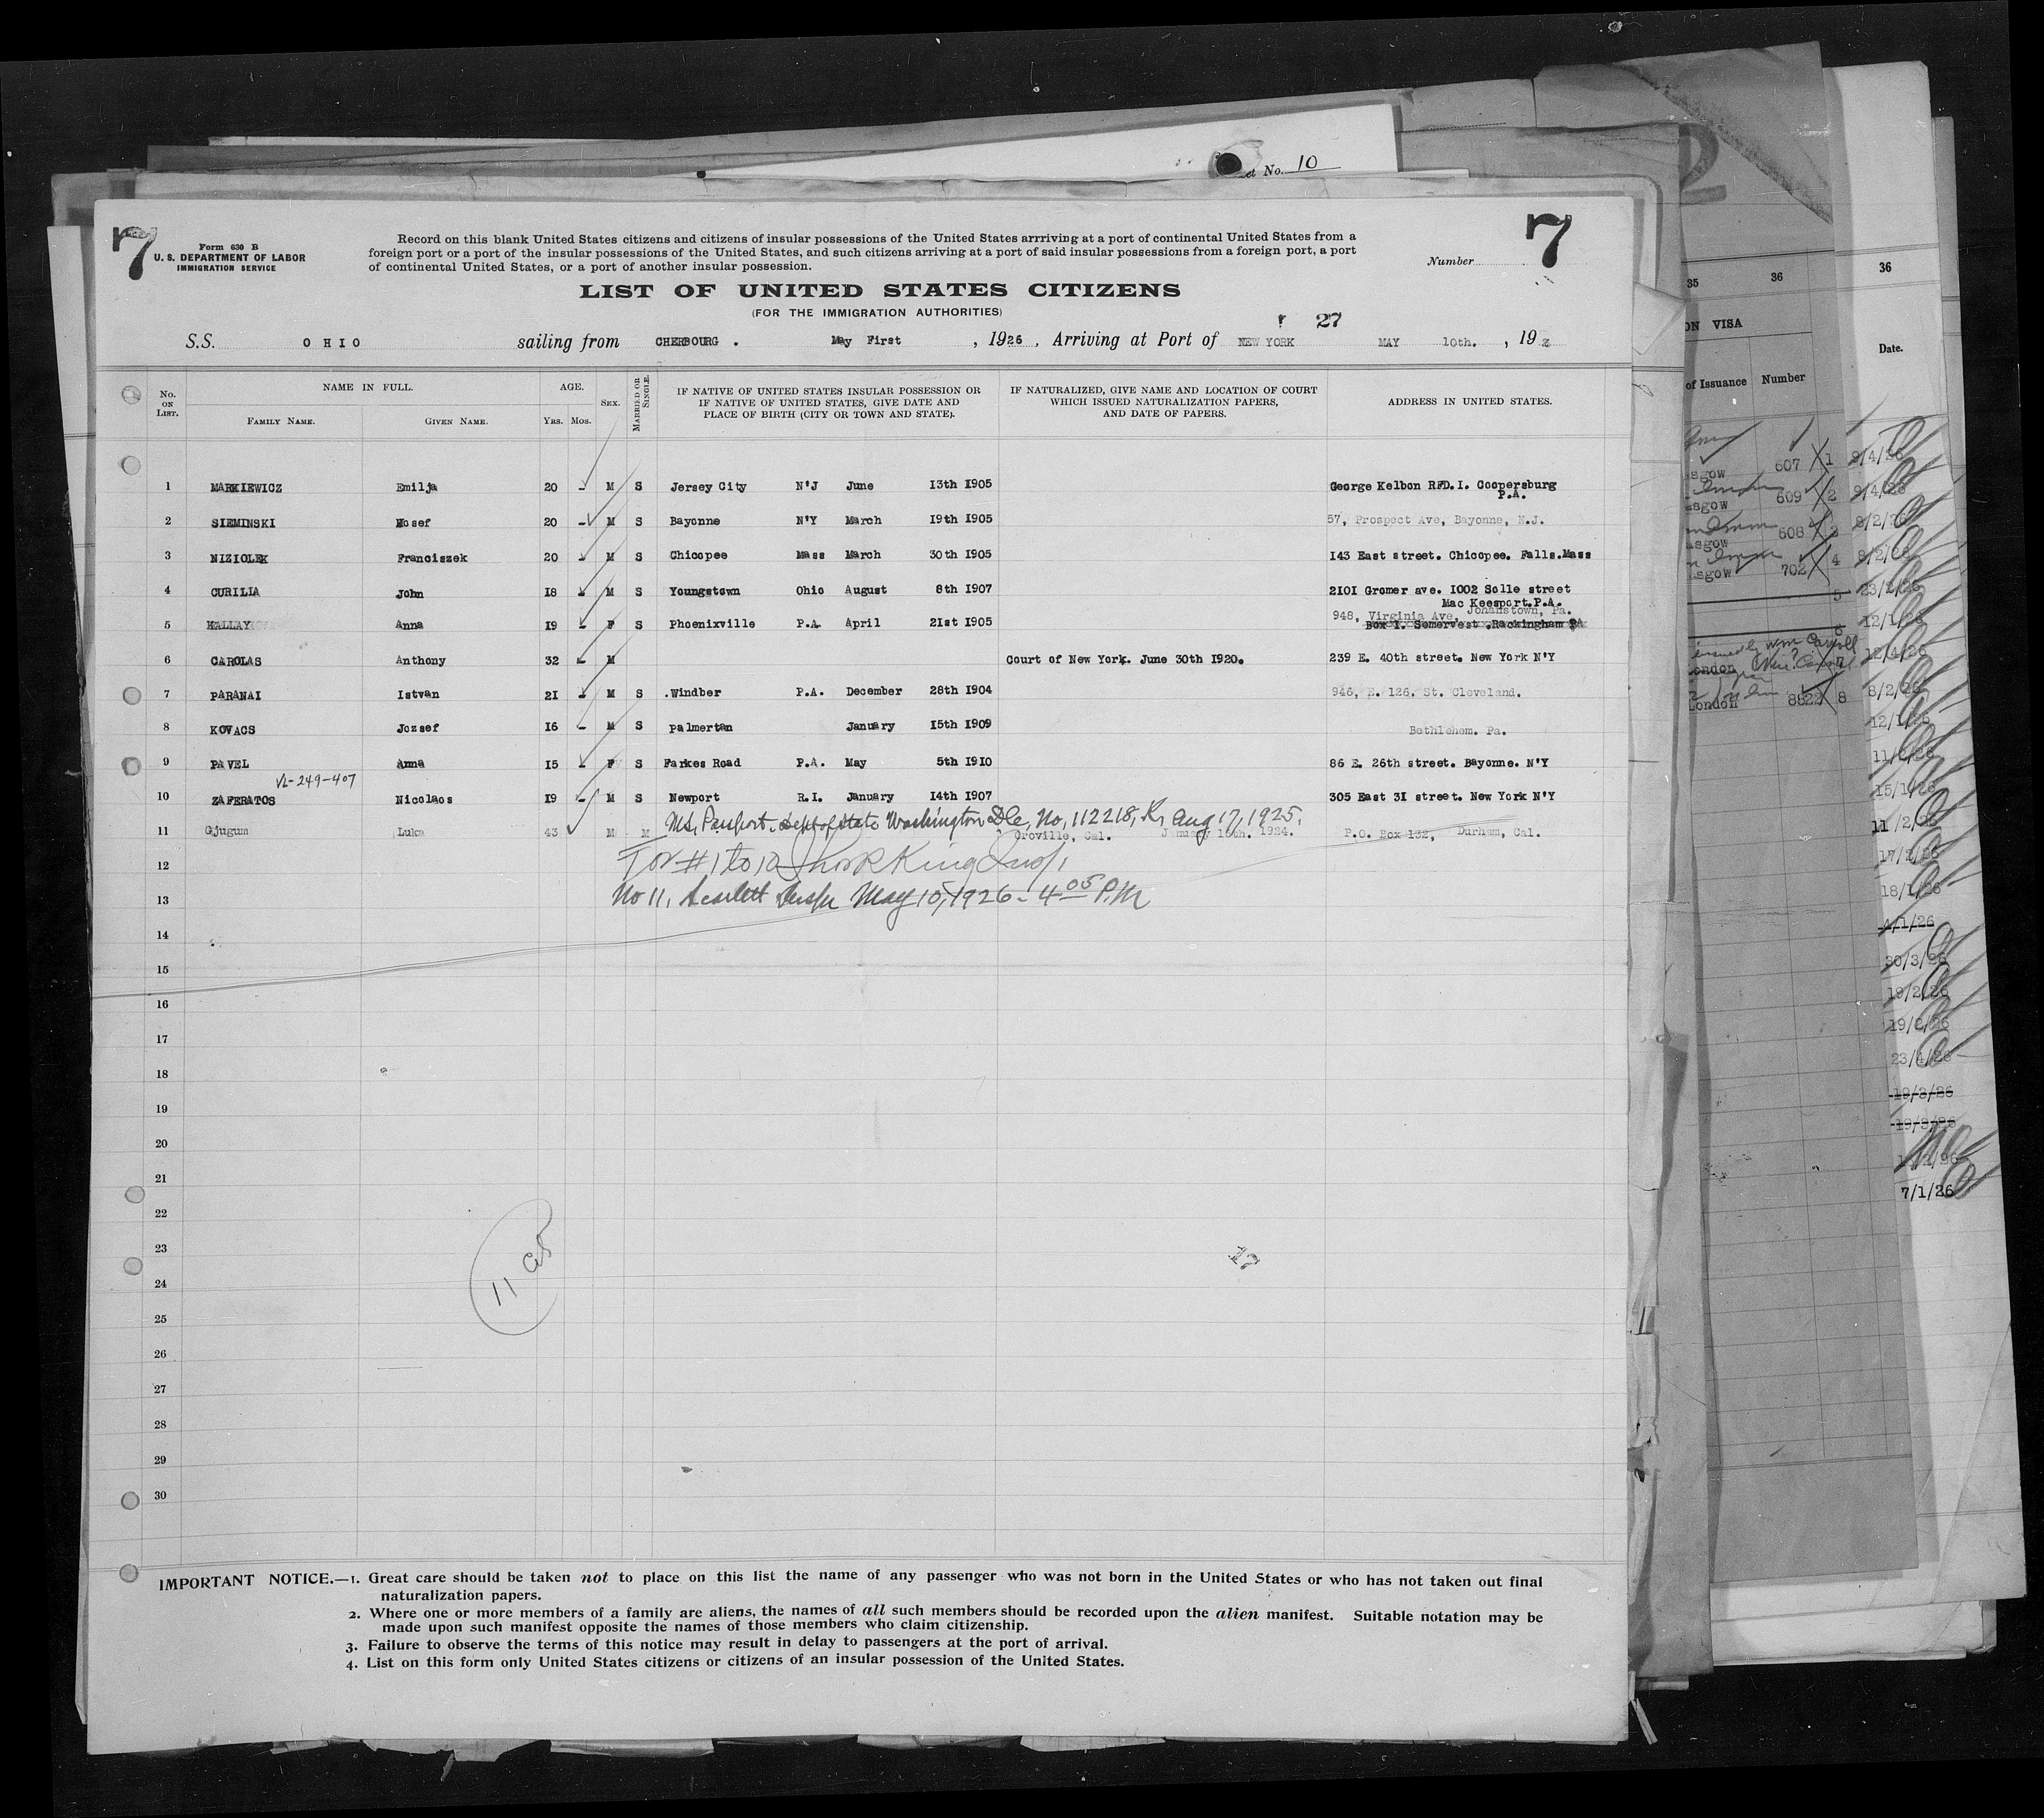 et No. 10
7
7
Form 630 B
U. S. DEPARTMENT OF LABOR
IMMIGRATION SERVICE
Record on this blank United States citizens and citizens of insular possessions of the United States arrriving at a port of continental United States from a
foreign port or a port of the insular possessions of the United States, and such citizens arriving at a port of said insular possessions from a foreign port, a port
of continental United States, or a port of another insular possession.
Number
LIST OF UNITED STATES CITIZENS
(FOR THE IMMIGRATION AUTHORITIES)
27
S.S. OHIO sailing from CHERBOURG . May First , 1926 , Arriving at Port of NEW YORK MAY 10th. , 19
No. ON LIST. NAME IN FULL. AGE. SEX. MARRIED OR SINGLE. IF NATIVE OF UNITED STATES INSULAR POSSESSION OR IF NATIVE OF UNITED STATES, GIVE DATE AND PLACE OF BIRTH (CITY OR TOWN AND STATE). IF NATURALIZED, GIVE NAME AND LOCATION OF COURT WHICH ISSUED NATURALIZATION PAPERS, AND DATE OF PAPERS. ADDRESS IN UNITED STATES.
FAMILY NAME. GIVEN NAME. YRS. MOS.
1 MARKIEWICZ Emilja 20 - M S Jersey City N'J June 13th 1905 George Kelbon RFD.I. Coopersburg
P.A.
2 SIEMINSKI 20 - M S Bayonne N'Y March 19th 1905 57, Prospect Ave, Bayonne, N.J.
3 NIZIOLEK Franciszek 20 - M S Chicopee Mass March 30th 1905 143 East street. Chicopee. Falls.Mass
4 CURILIA John 18 - M S Youngstown Ohio August 8th 1907 2101 Gromer ave. 1002 Solle street
Mac Keesport.P.A.
948, Virginia Ave, Johanstown, Pa.
5 KALLAY Anna 19 - F S Phoenixville P.A. April 21st 1905 Box I. Somervest .Rackingham PA
6 CAROLAS Anthony 32 - M Court of New York. June 30th 1920. 239 E. 40th street. New York N'Y
7 PARANAI Istvan 21 - M S .Windber P.A. December 28th 1904 946, E. 126. St. Cleveland.
8 KOVACS Jozsef 16 - M S palmertan January 15th 1909 Bethlehem. Pa.
9 PAVEL Anna 15 - F S Farkes Road P.A. May 5th 1910 86 E. 26th street. Bayonne. N'Y
VL-249-407
10 ZAFERATOS Nicolaos 19 - M S Newport R.I. January 14th 1907 305 East 31 street. New York N'Y
Passport. Dept of State Washington No, 112218, Aug 17, 1925.
11 Gjugum Luka 43 M M Oroville, Cal. January 1924. P.O. Box 132, Durham, Cal.
12 For #1 to 10 King Insp,
13 No 11, Scarlett May 10, 1926 - 4 05 P.M
14
15
16
17
18
19
20
21
22
23
24
25
26
27
28
29
30
11
17
IMPORTANT NOTICE.—1. Great care should be taken not to place on this list the name of any passenger who was not born in the United States or who has not taken out final
naturalization papers.
2. Where one or more members of a family are aliens, the names of all such members should be recorded upon the alien manifest. Suitable notation may be
made upon such manifest opposite the names of those members who claim citizenship.
3. Failure to observe the terms of this notice may result in delay to passengers at the port of arrival.
4. List on this form only United States citizens or citizens of an insular possession of the United States.
2
35 36
ON VISA
of Issuance Number
sgow 607 1
sgow 609 2
asgow 608 3
asgow 702 4
5
6
London 7
London 8822 8
36
Date.
9/4/26
9/4/26
8/2/26
8/2/26
23/2/26
12/1/26
12/4/26
8/2/26
12/1/26
11/2/26
15/1/26
11/2/26
17/2/26
18/1/26
4/1/26
30/3/26
19/2/26
19/2/26
23/4/26
19/3/26
19/3/26
7/1/26